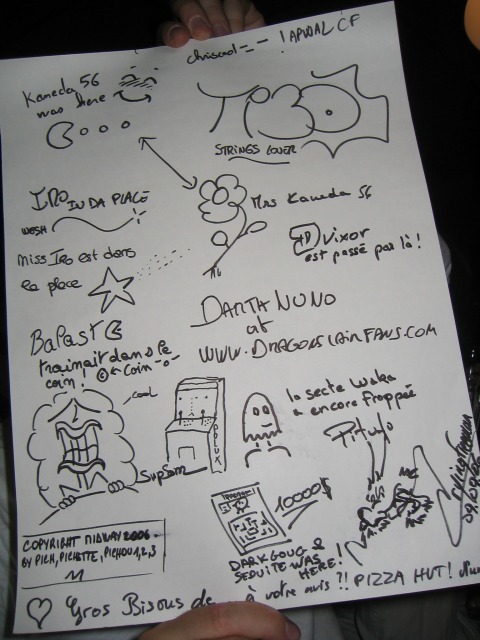 ! APWAL CF
Kaneda 56
was here
TiBO
STRINGS LOVER
IRO IN DA PLACE
WESH
Mrs Kaneda 56
Vixor
est passé par là !
miss Iro est dans
la place
DARTH NUNO
at
WWW.DRAGONSLAIRFANS.COM
BaPast
trainait dans le
coin !
© ← Coin
cool
la secte Waka
a encore frappée
SupSam
POLUX
Pitufo
10000$
09/09/06
COPYRIGHT MIDWAY 2006
BY PICH, PICHETTE, PICHOU 1,2,3
DARKGOUG &
SEDUITE WAS
HERE !
Gros Bisous de à votre avis ?! PIZZA HUT!